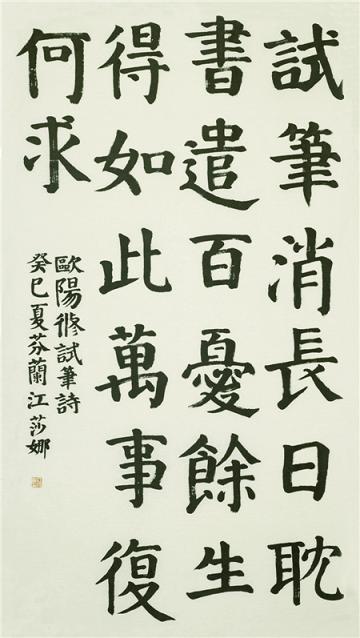 試筆消長日耽
書遣百憂餘生
得如此萬事復
何求
歐陽脩試筆詩
癸巳夏芬蘭江莎娜